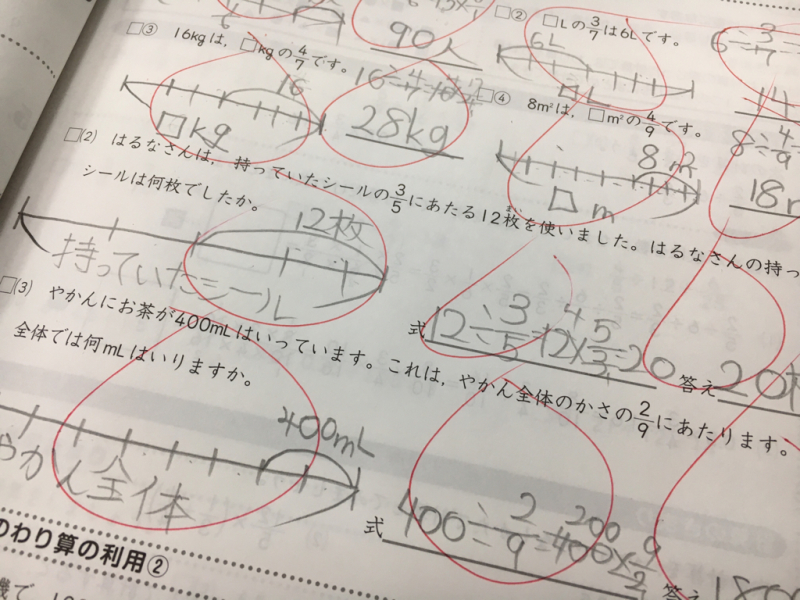 90人
□② □Lの3/7は6Lです。
6L
□L
6÷3/7
14
□③ 16kgは、□kgの4/7です。
16
□kg
16÷4/7
28kg
□④ 8m²は、□m²の4/9です。
8m²
□m
8÷4/9
18
□(2) はるなさんは、持っていたシールの3/5にあたる12枚を使いました。はるなさんの持っ
シールは何枚でしたか。
12枚
持っていたシール
式 12÷3/5=12×5/3=20
答え 20枚
□(3) やかんにお茶が400mLはいっています。これは、やかん全体のかさの2/9にあたります。
全体では何mLはいりますか。
400mL
やかん全体
式 400÷2/9=400×9/2
200
答え 1800
のわり算の利用②